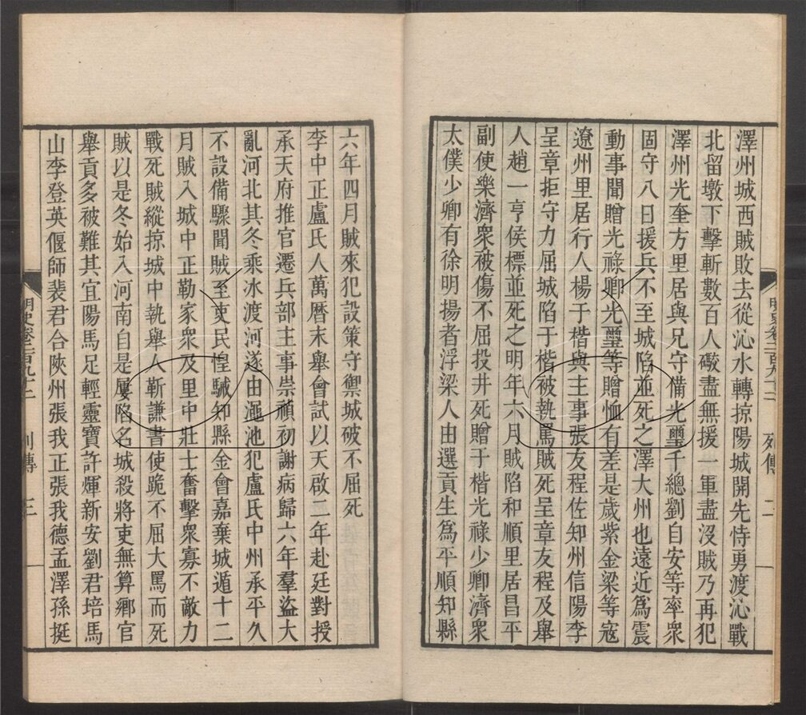 澤州城西賊敗去從沁水轉掠陽城開先恃勇渡沁戰
北留墩下擊斬數百人礮盡無援一軍盡沒賊乃再犯
澤州光奎方里居與兄守備光璽千總劉自安等率眾
固守八日援兵不至城陷並死之澤大州也遠近為震
動事聞贈光祿卿光璽等贈恤有差是歲紫金梁等寇
遼州里居行人楊于楷與主事張友程佐知州信陽李
呈章拒守力屈城陷于楷被執罵賊死呈章友程及舉
人趙一亨侯標並死之明年六月賊陷和順里居昌平
副使樂濟眾被傷不屈投井死贈于楷光祿少卿濟眾
太僕少卿有徐明揚者浮梁人由選貢生為平順知縣
明史卷二百九十二 列傳 二
六年四月賊來犯設策守禦城破不屈死
李中正盧氏人萬曆末舉會試以天啟二年赴廷對授
承天府推官遷兵部主事崇禎初謝病歸六年羣盜大
亂河北其冬乘冰渡河遂由澠池犯盧氏中州承平久
不設備驟聞賊至吏民惶駴知縣金會嘉棄城遁十二
月賊入城中正勒家眾及里中壯士奮擊眾寡不敵力
戰死賊縱掠城中執舉人靳謙書使跪不屈大罵而死
賊以是冬始入河南自是屢陷名城殺將吏無算鄉官
舉貢多被難其宜陽馬足輕靈寶許煇新安劉君培馬
山李登英偃師裴君合陝州張我正張我德孟澤孫挺
明史卷二百九十二 列傳 三